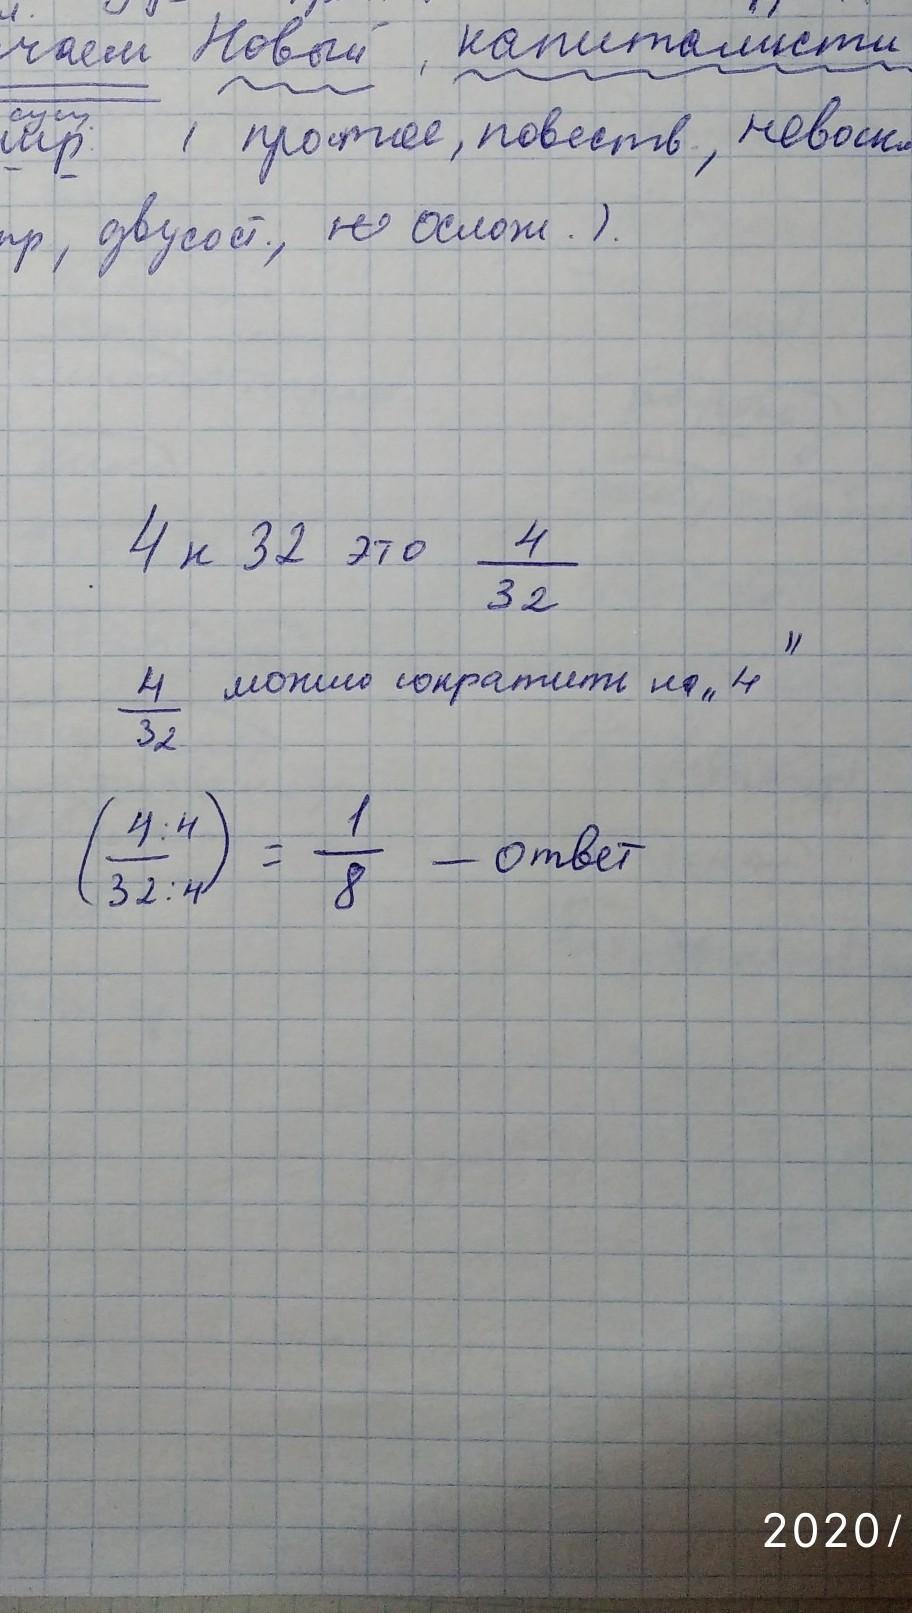 чаем Новый, капиталисти
сущ.
мир. ( простое, повеств., невоскл
пр, двусост., не ослож.).
4 к 32 это 4/32
4/32 можно сократить на „4"
(4:4/32:4) = 1/8 — ответ
2020/